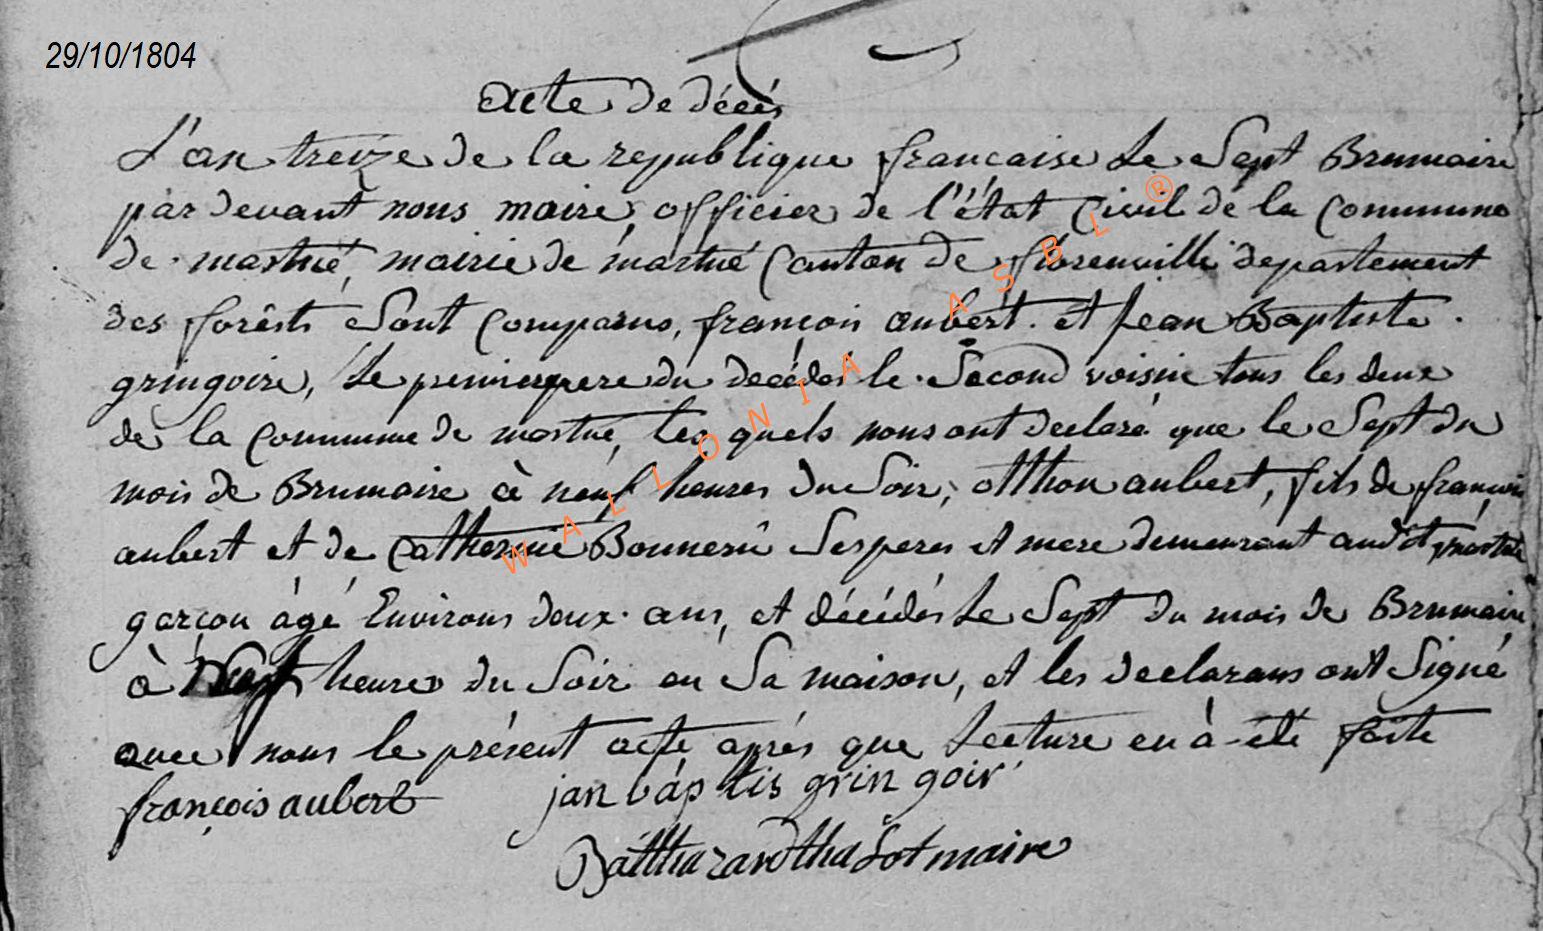 29/10/1804
acte de décés
L'an treize de la republique française Le Sept Brumaire
par devant nous maire, officier de l'état Civil de la Commune
de martué, mairie de martué Canton de florenville departement
des forêsts Sont Comparus, françois aubert. et Jean Baptiste.
gringoire, Le premier pere du decédés le Second voisin tous les deux
de la Commune de martué, les quels nous ont declaré que le Sept du
mois de Brumaire à neuf heures du Soir, otthon aubert, fils de françois
aubert et de Catherine Sesperes et mere demeurant audit martué
garçon âgé Environs deux ans, et décédés Le Sept du mois de Brumaire
à Neuf heures du Soir en Sa maison, et les declarans ont Signé
avec nous le présent acte aprés que Lecture en à été faite
françois aubert jan baptis gringoir
Balthazard maire
WALLONIA ASBL ®